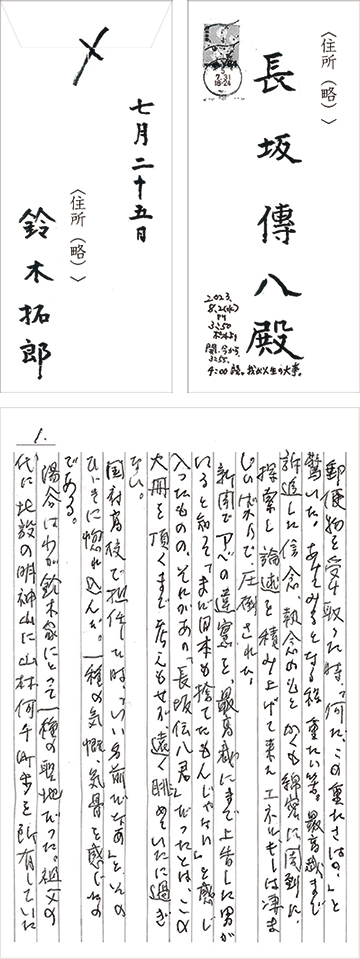 〈住所（略）〉
長坂傳八殿
7.31
18-24
2023.
8.2(水)
PM
3:50
開、今から
3:55、
4:00読。我が人生の大事。
〆
七月二十五日
〈住所（略）〉
鈴木拓郎
1.
郵便物を受け取った時、「何だ、この重たさは?」まで
驚いた。あけてみるとなる程重たい筈。最高裁まで
訴追した信念、執念のもとかくも綿密に周到に、
探索し論述を積み上げて来たエネルギーは凄ま
じいばかりで圧倒された。
新聞でアベの違憲を、最高裁にまで上告した男が
いると知って「まだ日本も捨てたもんじゃない」と感じ
入ったものの、それがあの「長坂伝八君」だったとは、この
大冊を頂くまで考えもせず遠く眺めていたに過ぎ
ない。
国府高校で担任した時、「いい名前だなあ」といの
ひいきに惚れ込んだ。一種の気慨、気骨を感じたの
である。
湯谷はわが鈴木家にとって一種の聖地だった。祖父の
代に北設の明神山に山林何千町歩を所有していた